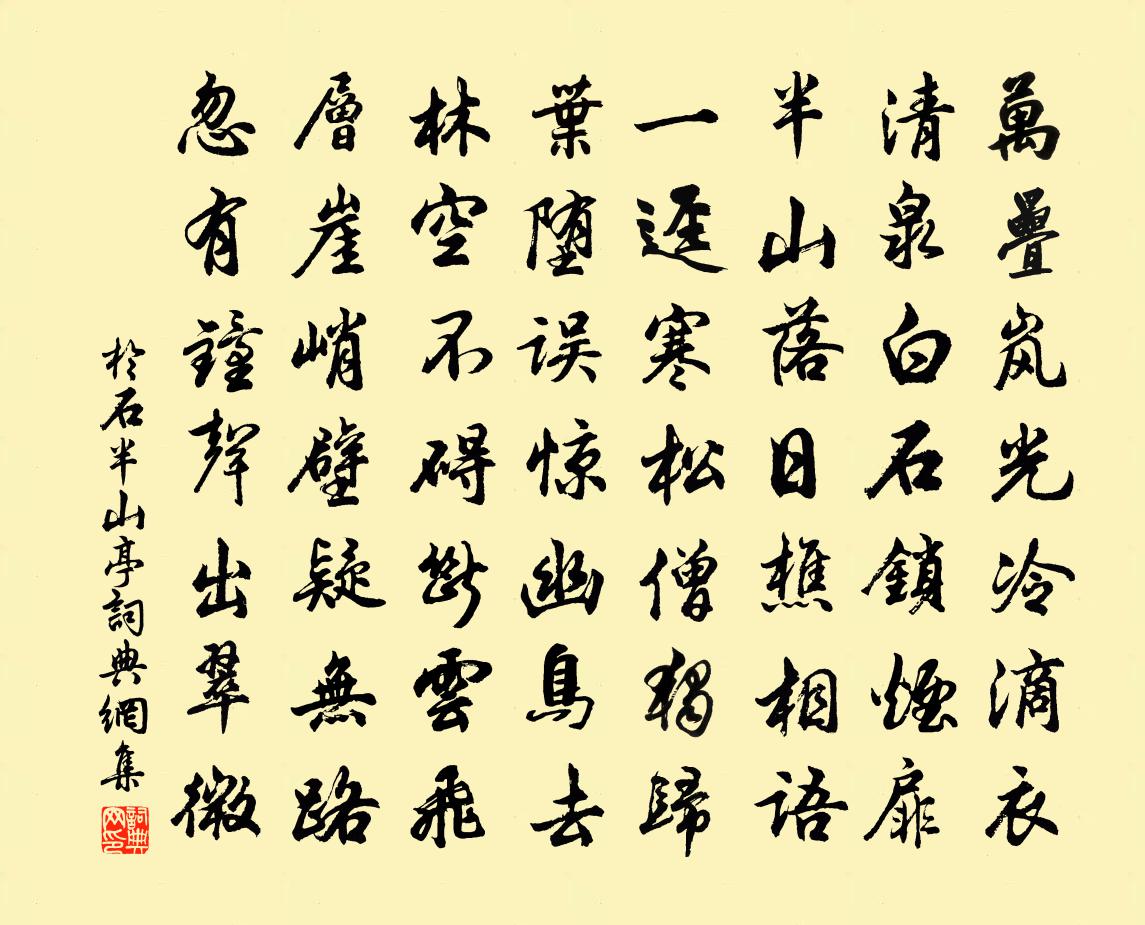 萬疊岚光冷滴衣
清泉白石鎖煙扉
半山落日樵相語
一逕寒松僧獨歸
葉墮误惊幽鳥去
林空不碍斷雲飛
層崖峭壁疑無路
忽有鐘聲出翠微
於石半山亭詞典網集
詞典网印